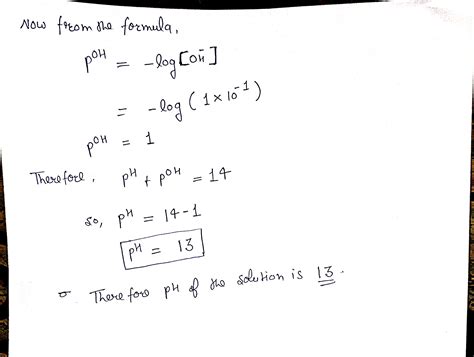 Now from the formula,
pOH = -log[OH⁻]
= -log (1×10⁻¹)
pOH = 1
Therefore, pH + pOH = 14
so, pH = 14-1
pH = 13
Therefore pH of the solution is 13.